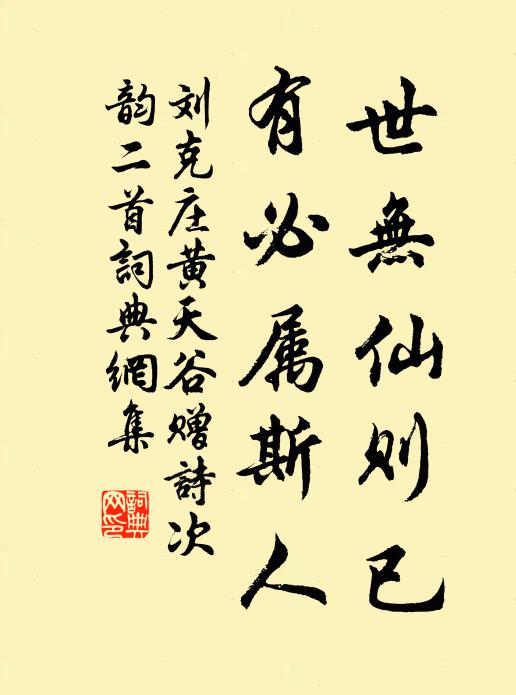 世無仙则已
有必属斯人
刘克庄黄天谷赠詩次
韵二首詞典網集
詞典
网印